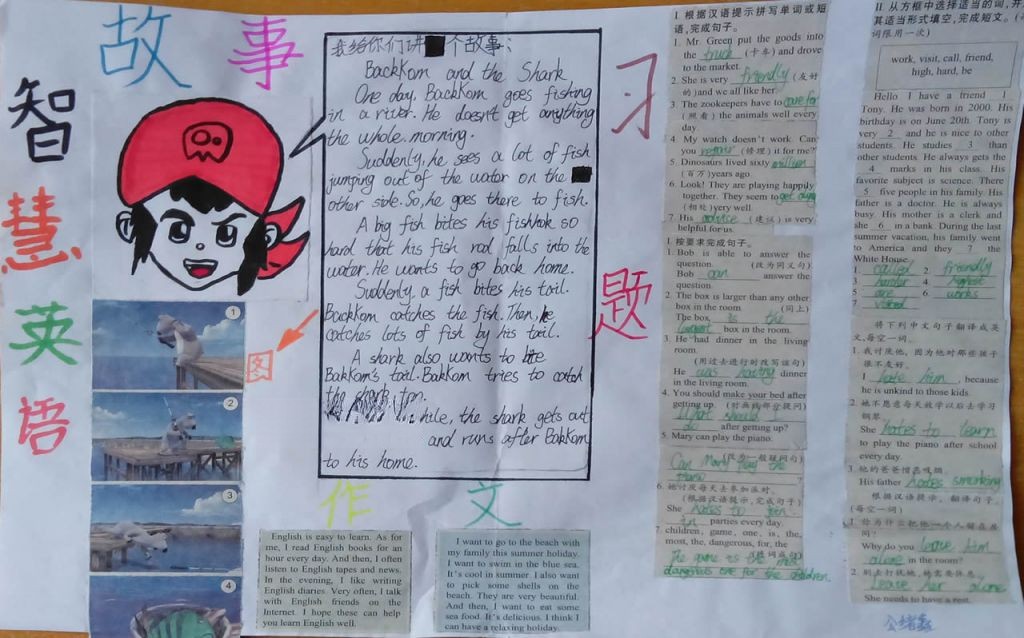 智慧英语
故事
我给你们讲个故事:
BackKom and the Shark
One day, BackKom goes fishing
in a river. He doesn't get anything
the whole morning.
Suddenly, he sees a lot of fish
jumping out of the water on the
other side. So, he goes there to fish.
A big fish bites his fishhok so
hard that his fish rod falls into the
water. He wants to go back home.
Suddenly, a fish bites his tail.
BackKom catches the fish. Then, he
catches lots of fish by his tail.
A shark also wants to bite
BakKom's tail. BakKom tries to catch
the shark, too.
hile, the shark gets out
and runs after BakKom
to his home.
图
1
2
3
4
作文
English is easy to learn. As for
me, I read English books for an
hour every day. And then, I often
listen to English tapes and news.
In the evening, I like writing
English diaries. Very often, I talk
with English friends on the
Internet. I hope these can help
you learn English well.
I want to go to the beach with
my family this summer holiday.
I want to swim in the blue sea.
It's cool in summer. I also want
to pick some shells on the
beach. They are very beautiful.
And then, I want to eat some
sea food. It's delicious. I think I
can have a relaxing holiday.
习题
I. 根据汉语提示拼写单词或短
语,完成句子。
1. Mr. Green put the goods into
the truck (卡车) and drove
to the market.
2. She is very friendly (友好
的)and we all like her.
3. The zookeepers have to care for
(照看) the animals well every
day.
4. My watch doesn't work. Can
you repair (修理) it for me?
5. Dinosaurs lived sixty million
(百万)years ago.
6. Look! They are playing happily
together. They seem to get along
(相处)very well.
7. His advice (建议) is very
helpful for us.
I. 按要求完成句子。
1. Bob is able to answer the
question. (改为同义句)
Bob can answer the
question.
2. The box is larger than any other
box in the room. (同上)
The box is the
largest box in the room.
3. He had dinner in the living
room.
(用过去进行时改写该句)
He was having dinner
in the living room.
4. You should make your bed after
getting up. (对画线部分提问)
What should
do after getting up?
5. Mary can play the piano.
(改为一般疑问句)
Can Mary play the
piano?
6. 她讨厌每天去参加派对。
(根据汉语提示,完成句子)
She hates to join
in parties every day.
7. children, game, one, is, the,
most, the, dangerous, for, the
(连词成句)
The game is the most
dangerous one for the children.
II. 从方框中选择适当的词,并
其适当形式填空,完成短文。(
词限用一次)
work, visit, call, friend,
high, hard, be
Hello I have a friend 1
Tony. He was born in 2000. His
birthday is on June 20th. Tony is
very 2 and he is nice to other
students. He studies 3 than
other students. He always gets the
4 marks in his class. His
favorite subject is science. There
5 five people in his family. His
father is a doctor. He is always
busy. His mother is a clerk and
she 6 in a bank. During the last
summer vacation, his family went
to America and they 7 the
White House.
1. called 2. friendly
3. harder 4. highest
5. are 6. works
7. visited
将下列中文句子翻译成英
文,每空一词。
1. 我讨厌他,因为他对那些孩子
很不友好。
I hate him, because
he is unkind to those kids.
2. 她不愿意每天放学以后去学习
钢琴。
She hates to learn
to play the piano after school
every day.
3. 他的爸爸憎恶吸烟。
His father hates smorking
根据汉语提示,翻译句子。
(每空一词)
1. 你为什么把他一个人留在房
间?
Why do you leave him
alone in the room?
2. 别去打扰她,她需要休息。
Leave her alone
She needs to have a rest.